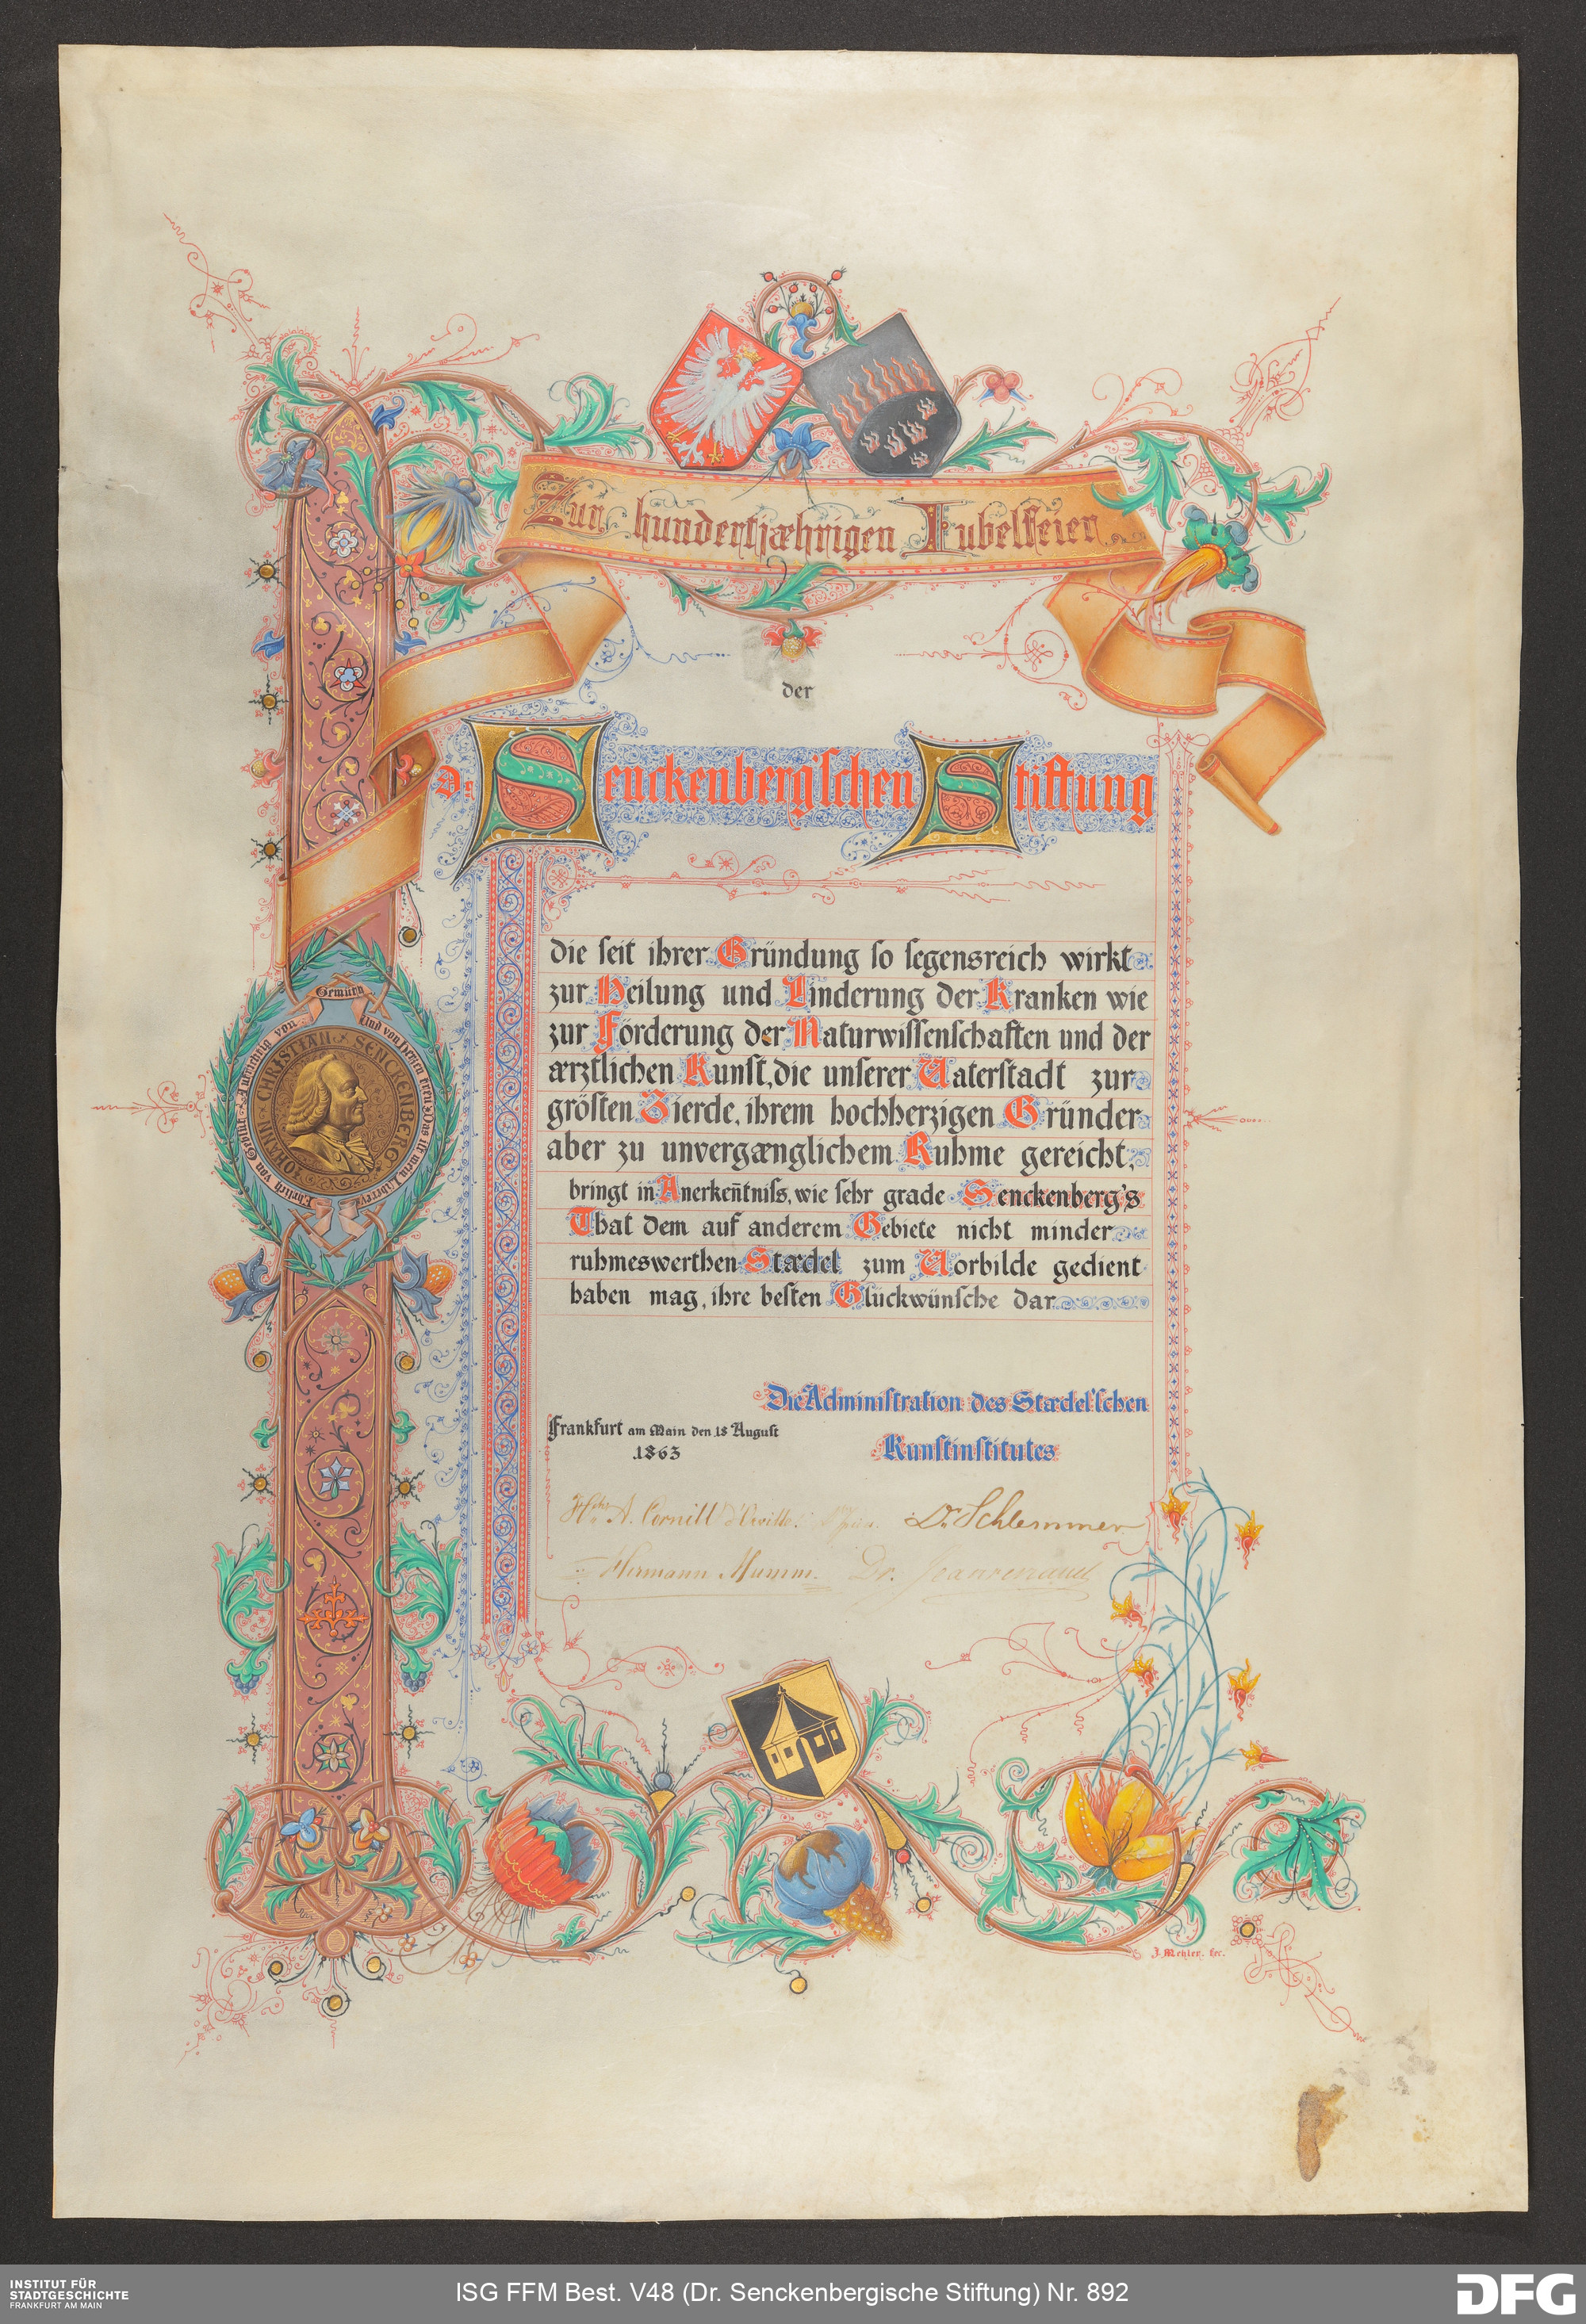 Zur hundertjæhrigen Jubelfeier
der
Dr Senckenberg'schen Stiftung
die seit ihrer Gründung so segensreich wirkt
zur Heilung und Linderung der Kranken wie
zur Förderung der Naturwissenschaften und der
ærztlichen Kunst, die unserer Vaterstadt zur
grösten Zierde, ihrem hochherzigen Gründer
aber zu unvergænglichem Ruhme gereicht,
bringt in Anerken̄tniss, wie sehr grade Senckenberg's
That dem auf anderem Gebiete nicht minder
ruhmeswerthen Stædel zum Vorbilde gedient
haben mag, ihre besten Glückwünsche dar
JOHANN CHRISTIAN SENCKENBERG
Ehrlich von Gemüt, Aufrichtig von
Gemüth
Und von Herzen treu, Das ist mein Liberei
Die Administration des Stædel'schen
Kunstinstitutes
Frankfurt am Main den 18 August
1863
A. Cornill d'Orville. Dr. Schlemmer
Hermann Mumm. Dr.
J. Mehler. fec.
INSTITUT FÜR
STADTGESCHICHTE
FRANKFURT AM MAIN
ISG FFM Best. V48 (Dr. Senckenbergische Stiftung) Nr. 892
DFG